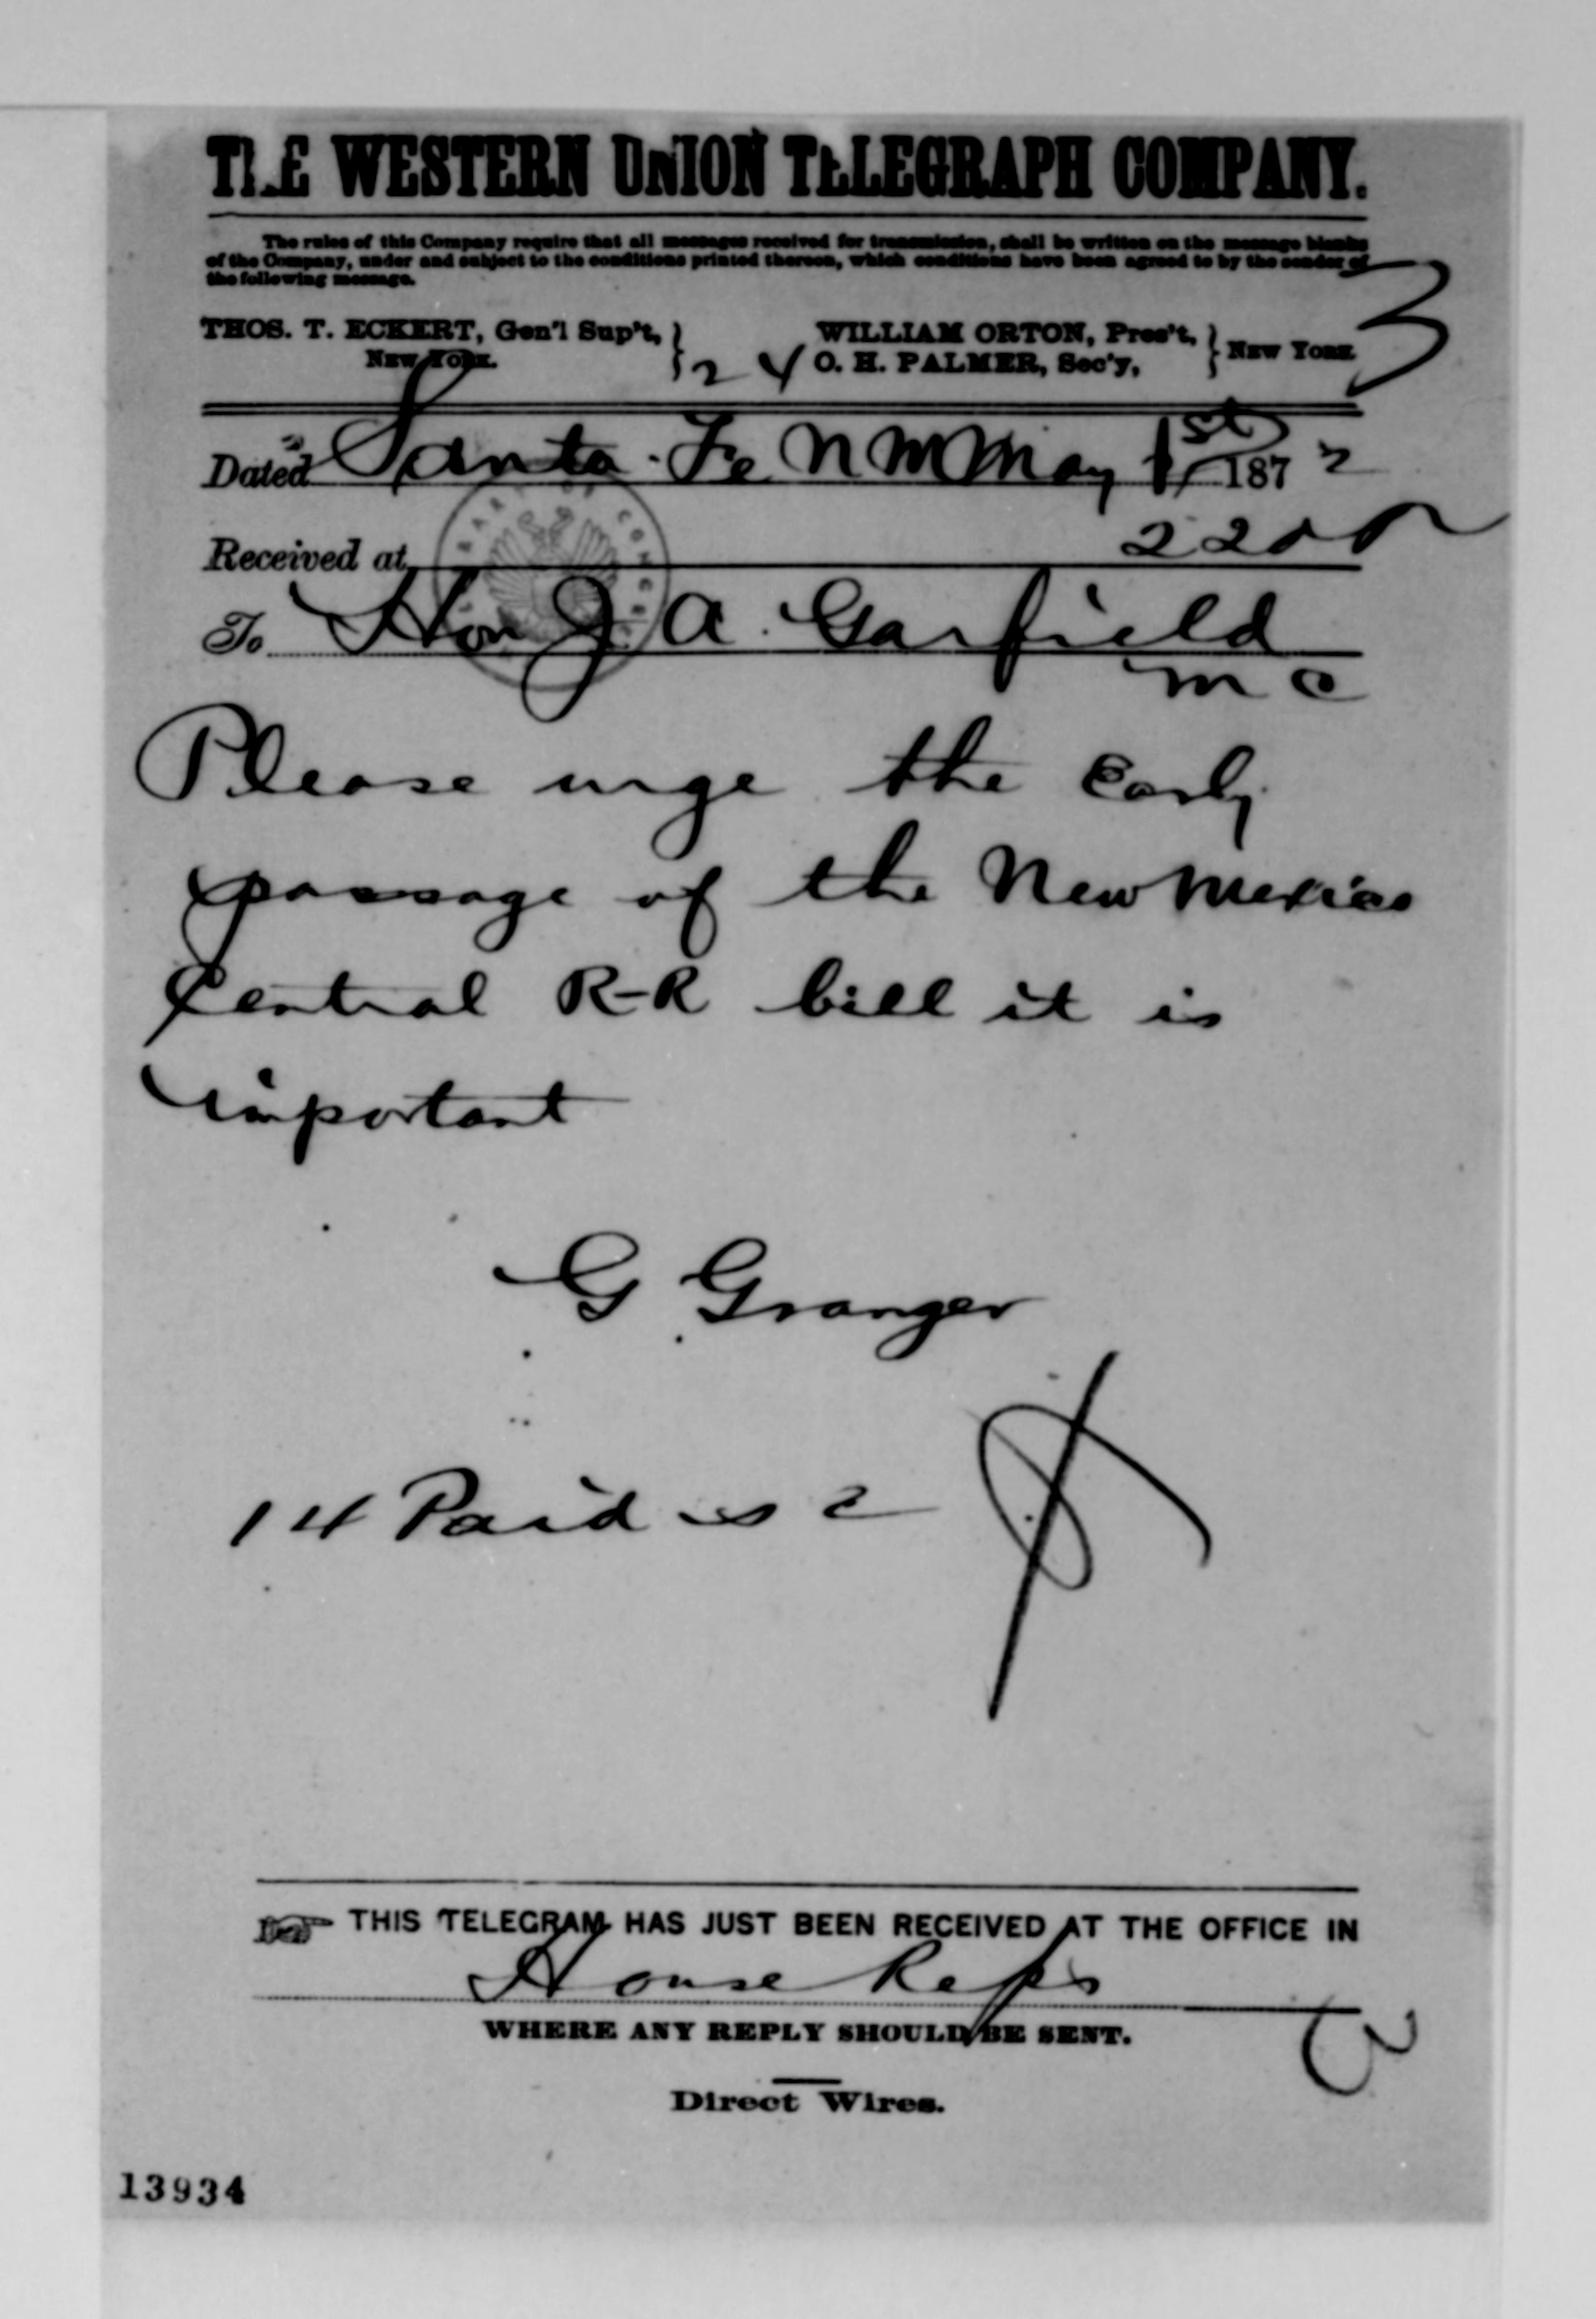 THE WESTERN UNION TELEGRAPH COMPANY.
The rules of this Company require that all messages received for transmission, shall be written on the message blanks
of the Company, under and subject to the conditions printed thereon, which conditions have been agreed to by the sender of
the following message.
THOS. T. ECKERT, Gen'l Sup't, WILLIAM ORTON, Pres't,
NEW YORK. 24 O. H. PALMER, Sec'y, NEW YORK 3
Dated Santa Fe N M May 1st 1872
Received at 220
To Hon J A. Garfield
M C
Please urge the early
passage of the New Mexico
Central R-R bill it is
important
G Granger
14 Paid
THIS TELEGRAM HAS JUST BEEN RECEIVED AT THE OFFICE IN
House Reps
WHERE ANY REPLY SHOULD BE SENT.
Direct Wires.
13934